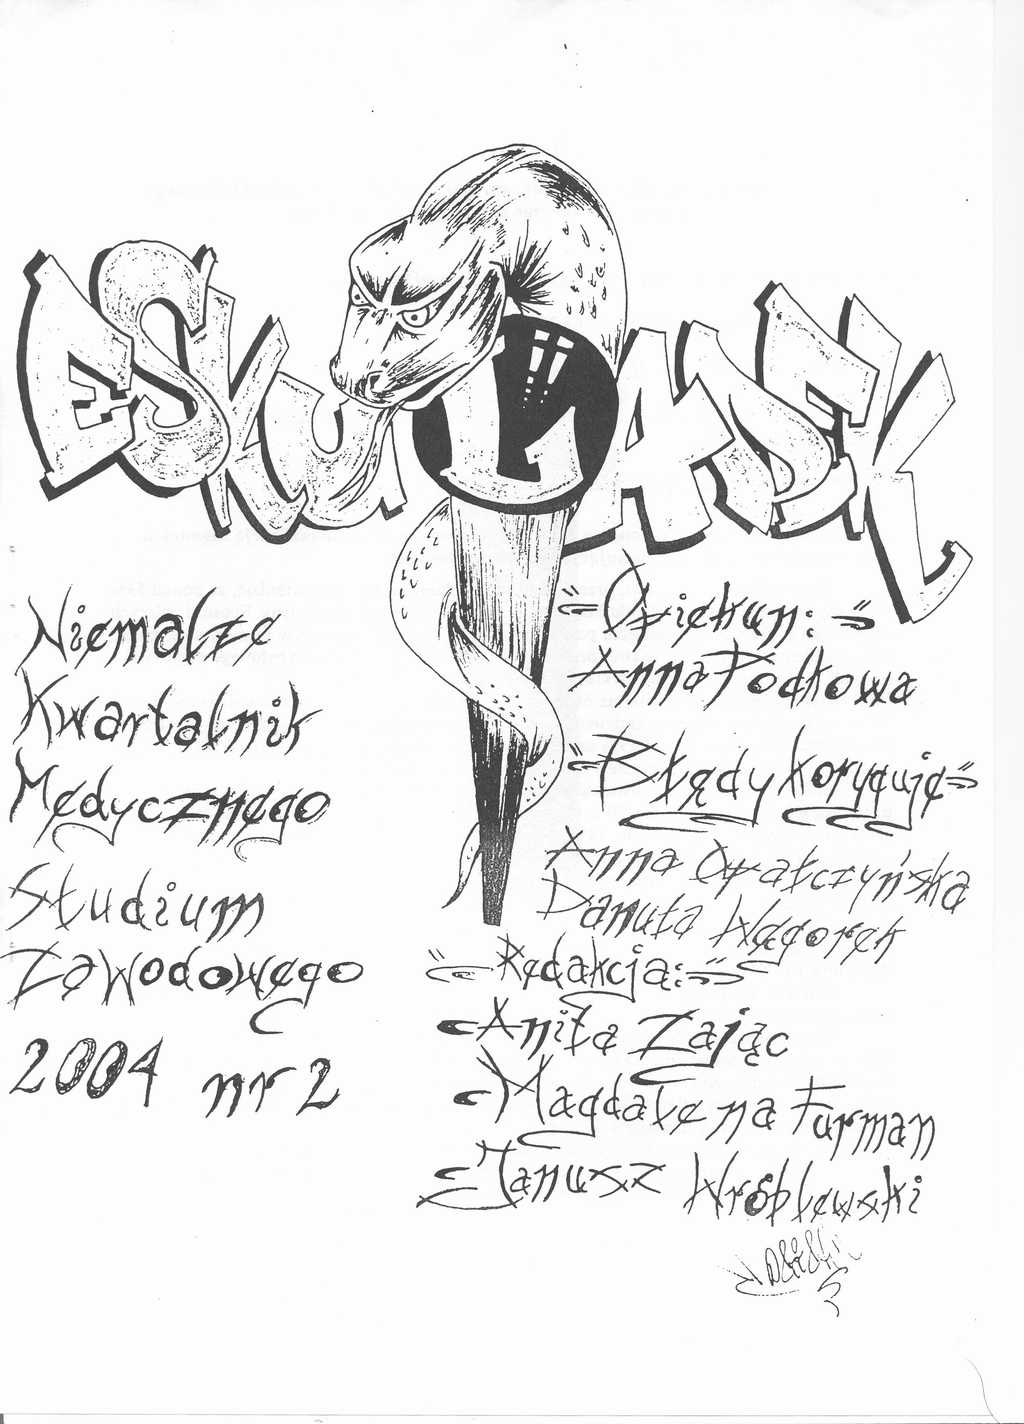 ESKULAPEK
Niemalże
Kwartalnik
Medycznego
Studium
Zawodowego
2004 nr 2
Opiekun:
Anna Podkowa
Błędy korygują
Anna Opałczyńska
Danuta Węgorek
Redakcja:
Anita Zając
Magdalena Furman
Janusz Wróblewski